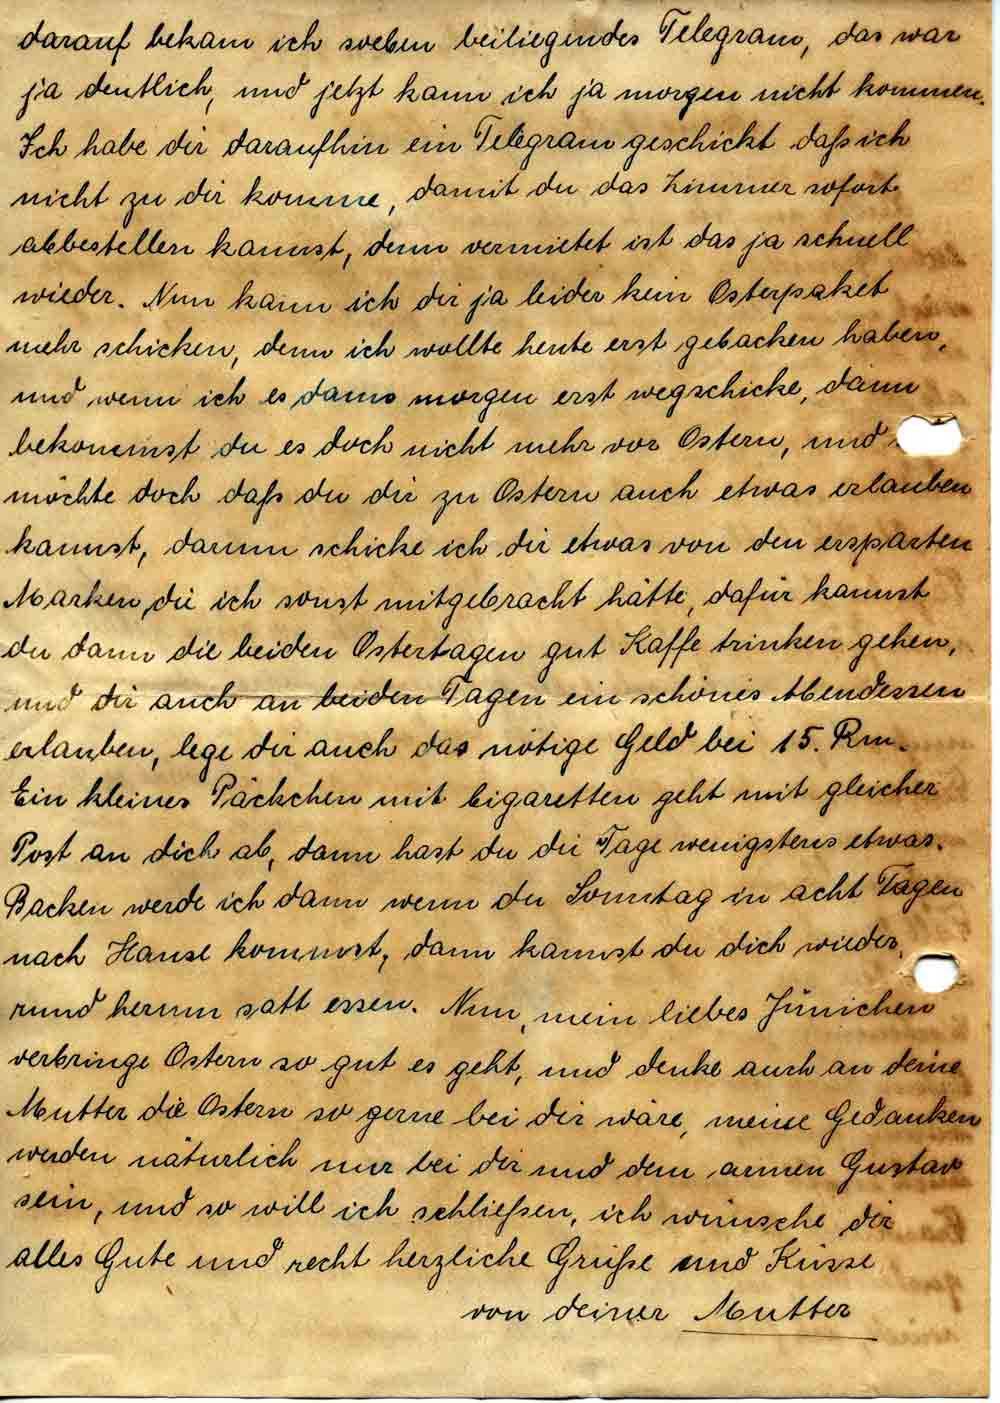 darauf bekam ich soeben beiliegendes Telegram, das war
ja deutlich, und jetzt kann ich ja morgen nicht kommen.
Ich habe dir daraufhin ein Telegram geschickt daß ich
nicht zu dir komme, damit du das Zimmer sofort
abbestellen kannst, denn vermietet ist das ja schnell
wieder. Nun kann ich dir ja leider kein Osterpaket
mehr schicken, denn ich wollte heute erst gebacken haben,
und wenn ich es dann morgen erst wegschicke, dann
bekommst du es doch nicht mehr vor Ostern, und
möchte doch daß du dir zu Ostern auch etwas erlauben
kannst, darum schicke ich dir etwas von den ersparten
Marken die ich sonst mitgebracht hätte, dafür kannst
du dann die beiden Ostertagen gut Kaffe trinken gehen,
und dir auch an beiden Tagen ein schönes Abendessen
erlauben, lege dir auch das nötige Geld bei 15. Rm.
Ein kleines Päckchen mit Cigaretten geht mit gleicher
Post an dich ab, dann hast du die Tage wenigstens etwas.
Backen werde ich dann wenn du Sonntag in acht Tagen
nach Hause kommst, dann kannst du dich wieder,
rund herum satt essen. Nun, mein liebes Jünichen
verbringe Ostern so gut es geht, und denke auch an deine
Mutter die Ostern so gerne bei dir wäre, meine Gedanken
werden natürlich nur bei dir und dem armen Gustav
sein, und so will ich schließen, ich wünsche dir
alles Gute und recht herzliche Grüße und Küsse
von deiner Mutter